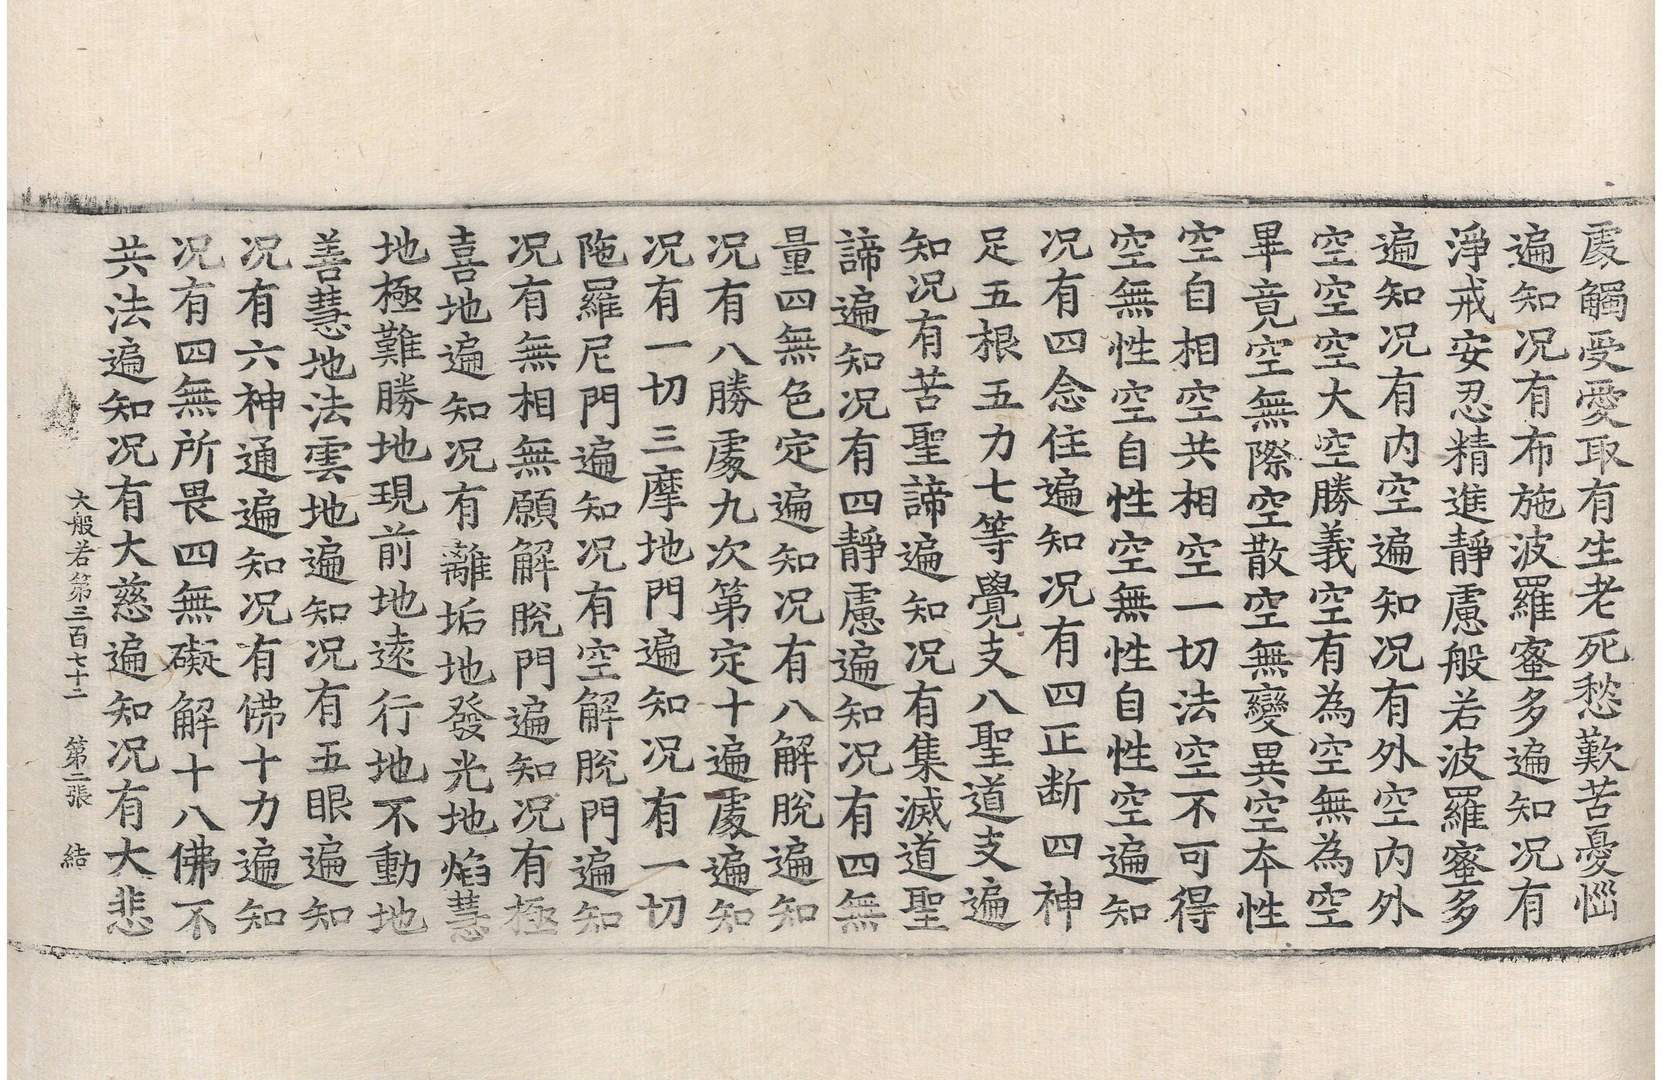 處觸受愛取有生老死愁歎苦憂惱
遍知况有布施波羅蜜多遍知况有
淨戒安忍精進靜慮般若波羅蜜多
遍知况有内空遍知况有外空内外
空空空大空勝義空有為空無為空
畢竟空無際空散空無變異空本性
空自相空共相空一切法空不可得
空無性空自性空無性自性空遍知
况有四念住遍知况有四正断四神
足五根五力七等覺支八聖道支遍
知况有苦聖諦遍知况有集滅道聖
諦遍知况有四靜慮遍知况有四無
量四無色定遍知况有八解脫遍知
况有八勝處九次第定十遍處遍知
况有一切三摩地門遍知况有一切
陁羅尼門遍知况有空解脫門遍知
况有無相無願解脫門遍知况有極
喜地遍知况有離垢地發光地焰慧
地極難勝地現前地遠行地不動地
善慧地法雲地遍知况有五眼遍知
况有六神通遍知况有佛十力遍知
况有四無所畏四無礙解十八佛不
共法遍知况有大慈遍知况有大悲
大般若第三百七十二 第二張 結